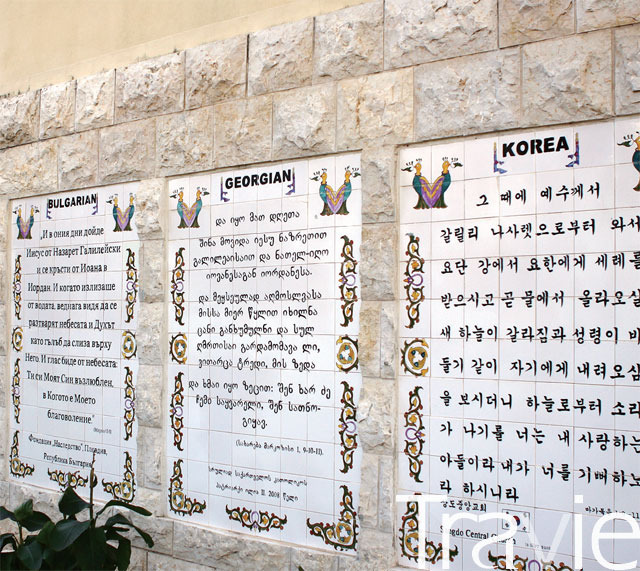 BULGARIAN
„И в ония дни дойде
Иисус от Назарет Галилейски
и се кръсти от Иоана в
Иордан. И когато излизаше
от водата, веднага видя да се
разтварят небесата и Духът
като гълъб да слиза върху
Него. И глас биде от небесата:
Ти си Моят Син възлюбен,
в Когото е Моето
благоволение“
Фондация „Наследство“, Пловдив,
Република България
GEORGIAN
და იყო მათ დღეთა
შინა მოვიდა იესუ ნაზრეთით
გალილეაისაით და ნათელ-იღო
იოვანესაგან იორდანესა.
და მეყსეულად აღმოსლვასა
მისსა მიერ წყლით იხილნა
ცანი განხუმულნი და სულ
ღმრთისაი გარდამომავა ლი,
ვითარცა ტრედი, მის ზედა
და ხმაი იყო ზეცით: შენ ხარ ძე
ჩემი საყვარელი, შენ სათნო-
გიყავ.
(სახარება მარკოზისი 1, 9-10-11).
სრულიად საქართველოს კათოლიკოს
პატრიარქი ილია II. 2008 წელი
KOREA
그 때에 예수께서
갈릴리 나사렛으로부터 와서
요단 강에서 요한에게 세례를
받으시고 곧 물에서 올라오실
새 하늘이 갈라짐과 성령이 비
둘기 같이 자기에게 내려오심
을 보시더니 하늘로부터 소리
가 나기를 너는 내 사랑하는
아들이라 내가 너를 기뻐하노
라 하시니라
마가복음
강도중앙교회
Central
Travie